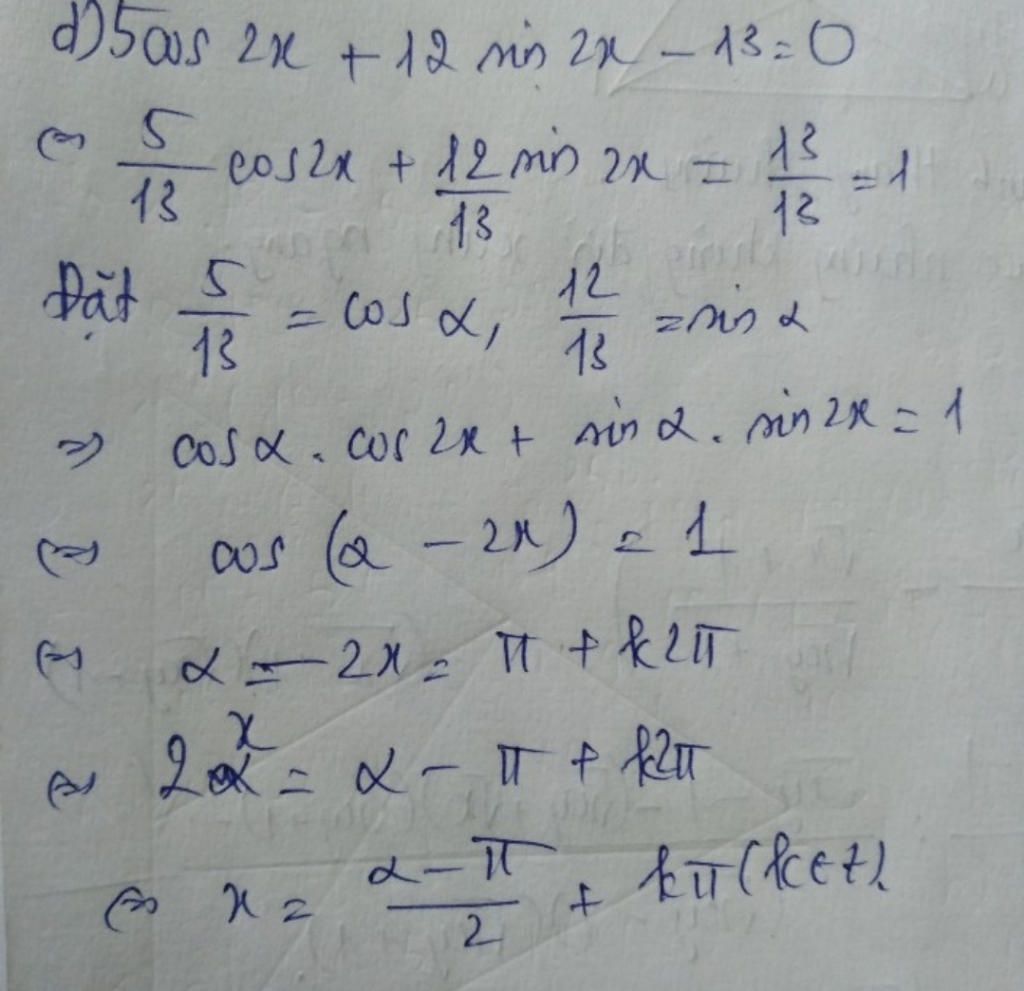 d) 5cos 2x + 12 sin 2x - 13 = 0
⇔ 5/13 cos2x + 12/13 sin 2x = 13/13 = 1
Đặt 5/13 = cos α, 12/13 = sin α
⇒ cosα . cos 2x + sin α . sin 2x = 1
⇔ cos (α - 2x) = 1
⇔ α - 2x = π + k2π
⇔ 2x = α - π + k2π
⇔ x = (α - π)/2 + kπ (k ∈ Z).